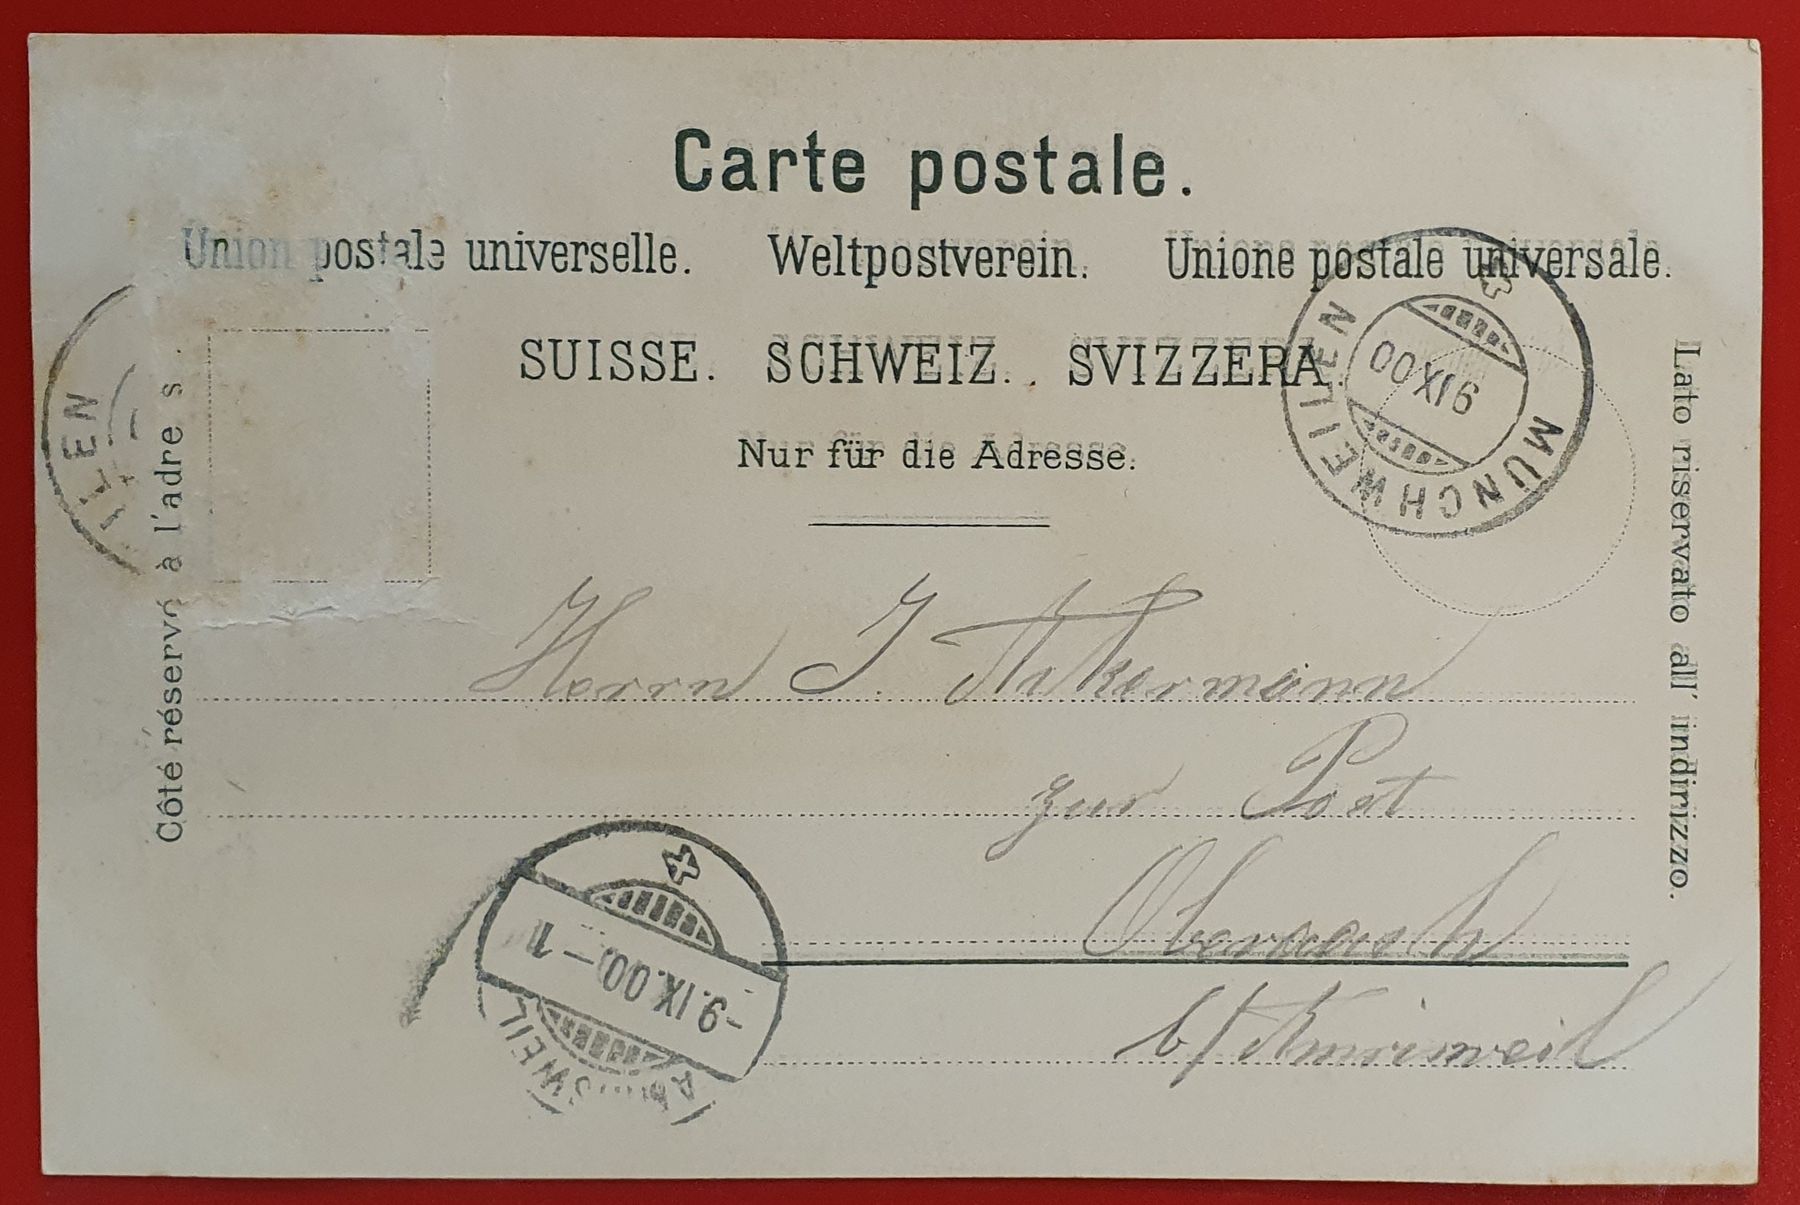 Carte postale.
Union postale universelle. Weltpostverein. Unione postale universale.
SUISSE. SCHWEIZ. SVIZZERA.
Nur für die Adresse.
Côté réservé à l'adre s .
Lato riservato all' indirizzo.
ILEN
MÜNCHWEILEN
9 IX 00
Herrn J. Ackermann
zur Post
Oberaach
b/ Amrisweil
-9.IX.00-11
A SWEIL